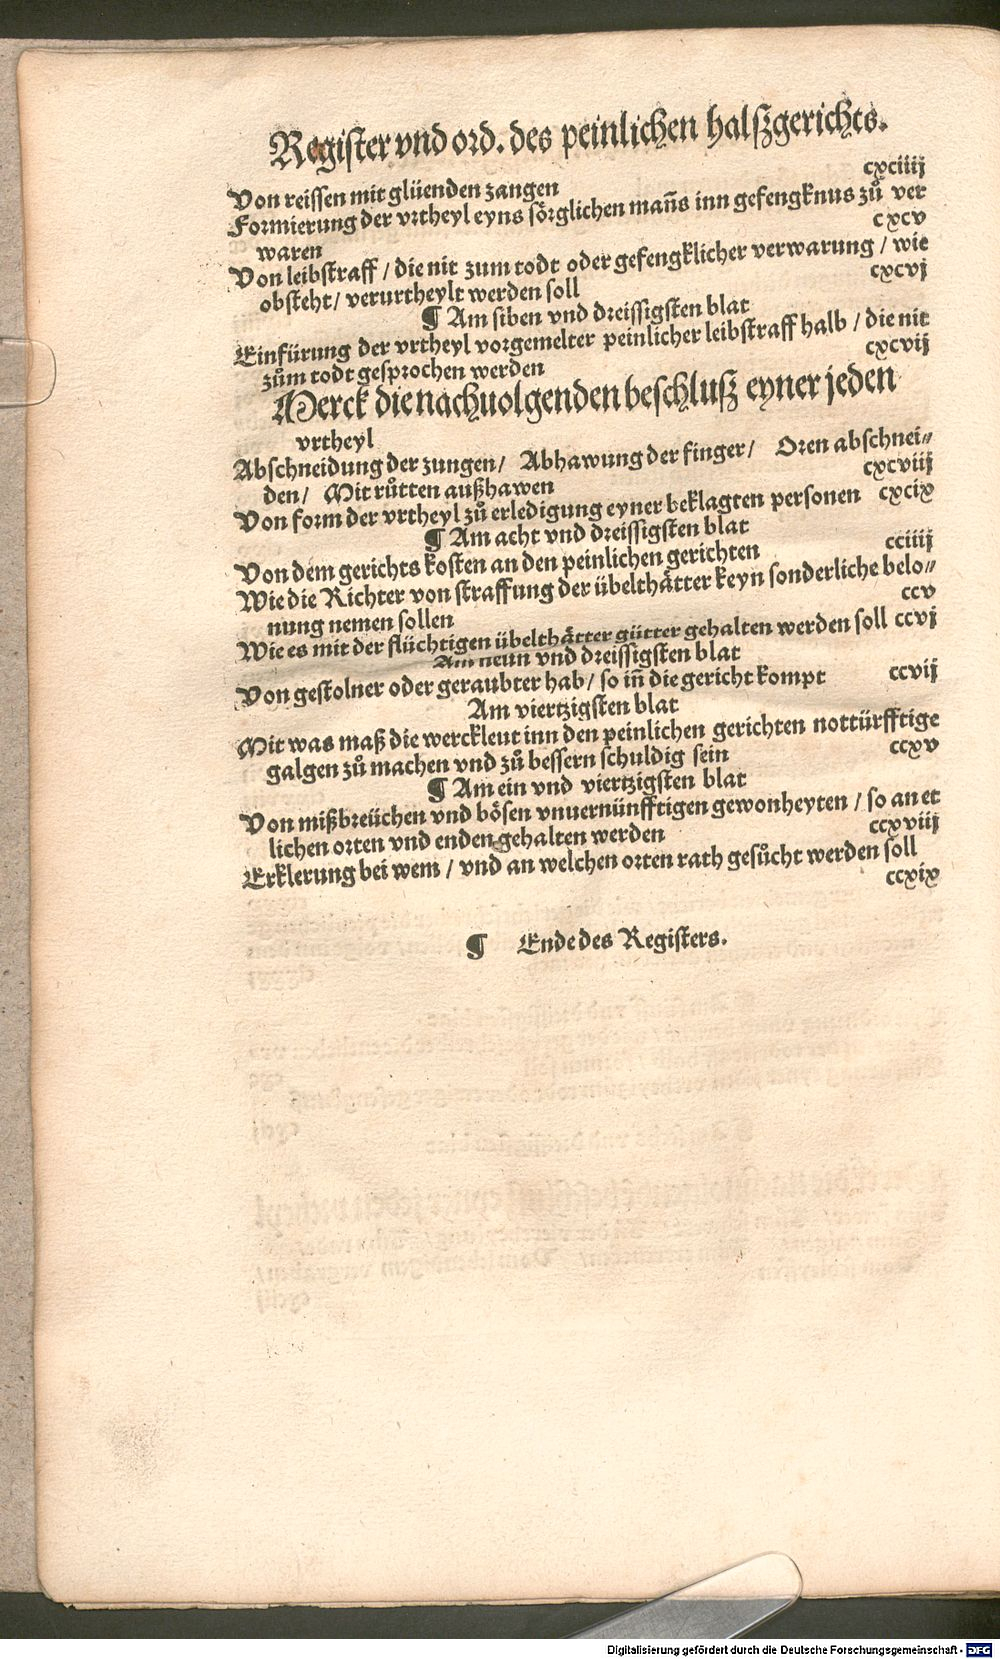 Register vnd ord. des peinlichen halßgerichts.
Von reissen mit glüenden zangen cxciiij
Formierung der vrtheyl eyns sörglichen mañs inn gefengknus zů ver
waren cxcv
Von leibstraff / die nit zum todt oder gefengklicher verwarung / wie
obsteht / verurtheylt werden soll cxcvj
¶ Am siben vnd dreissigsten blat
Einfürung der vrtheyl vorgemelter peinlicher leibstraff halb / die nit
zům todt gesprochen werden cxcvij
Merck die nachuolgenden beschluß eyner jeden
vrtheyl
Abschneidung der zungen / Abhawung der finger / Oren abschnei⸗
den / Mit růtten außhawen cxcviij
Von form der vrtheyl zů erledigung eyner beklagten personen cxcix
¶ Am acht vnd dreissigsten blat
Von dem gerichts kosten an den peinlichen gerichten cciiij
Wie die Richter von straffung der übelthätter keyn sonderliche belo⸗
nung nemen sollen ccv
Wie es mit der flüchtigen übelthätter gütter gehalten werden soll ccvj
Am neun vnd dreissigsten blat
Von gestolner oder geraubter hab / so iñ die gericht kompt ccvij
Am viertzigsten blat
Mit was maß die werckleut inn den peinlichen gerichten nottürfftige
galgen zů machen vnd zů bessern schuldig sein ccxv
¶ Am ein vnd viertzigsten blat
Von mißbreüchen vnd bösen vnuernünfftigen gewonheyten / so an et
lichen orten vnd enden gehalten werden ccxviij
Erklerung bei wem / vnd an welchen orten rath gesůcht werden soll
ccxix
¶ Ende des Registers.
Digitalisierung gefördert durch die Deutsche Forschungsgemeinschaft - DFG